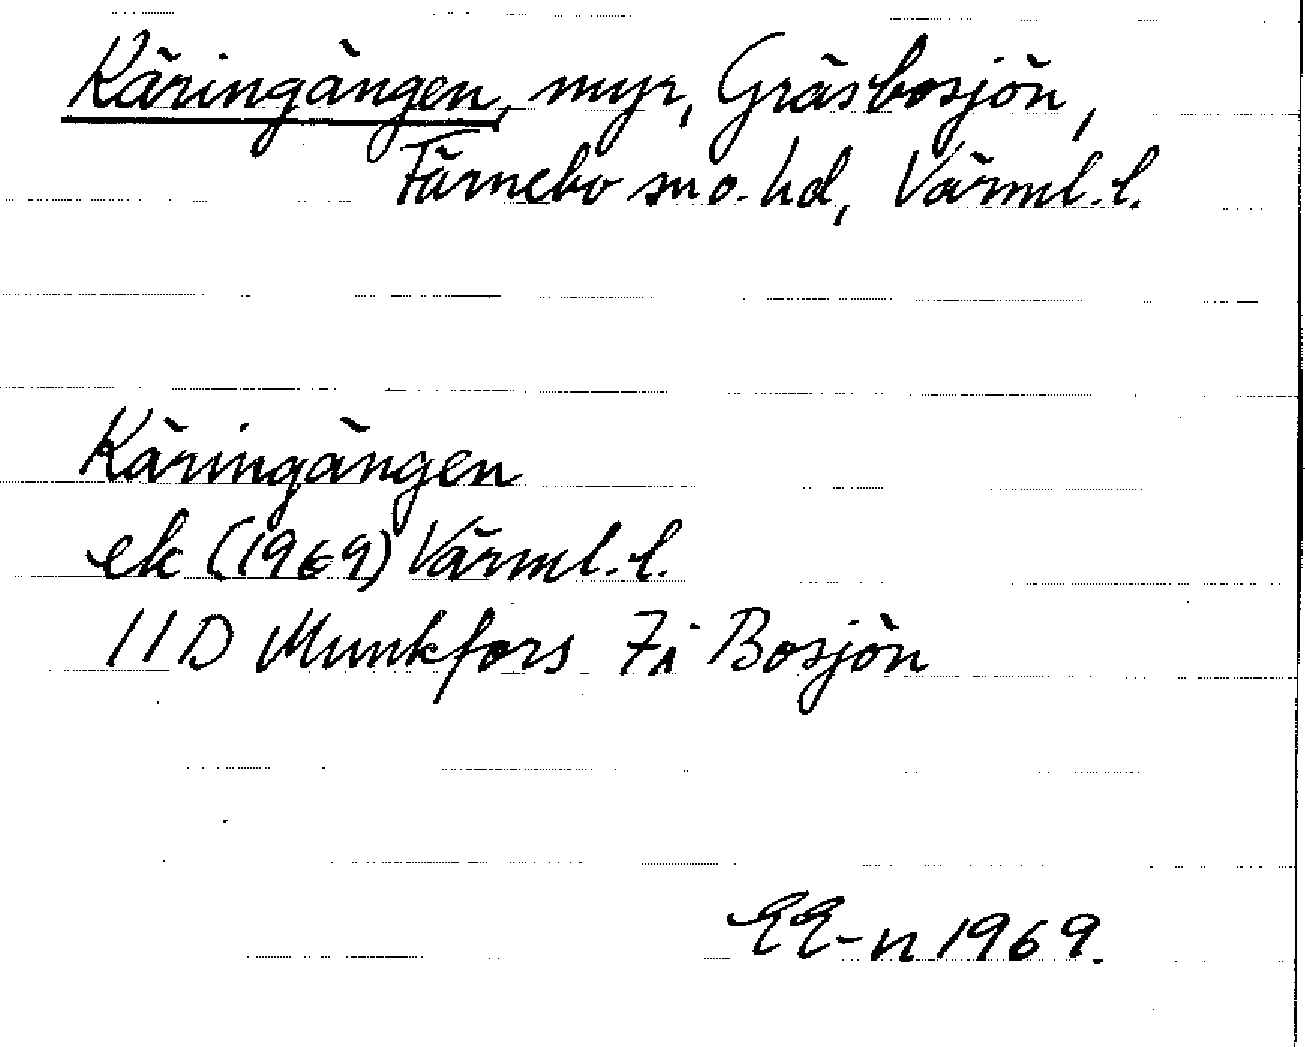 Käringängen, myr, Gräsbosjön,
Färnebo sn o. hd, Värml. l.
Käringängen
ek (1969) Värml. l.
11D Munkfors 7i Bosjön
EE-n 1969.